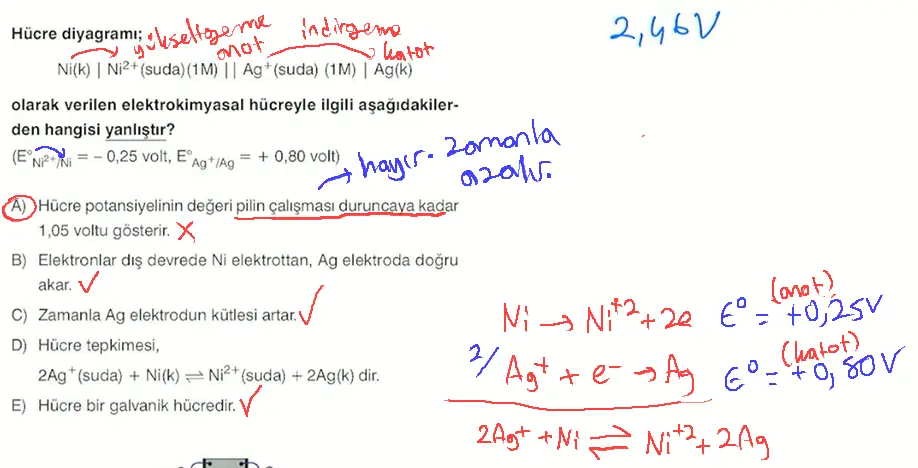 2,46V
Hücre diyagramı;
yükseltgeme
anot
indirgeme
katot
Ni(k) | Ni²⁺(suda)(1M) || Ag⁺(suda) (1M) | Ag(k)
olarak verilen elektrokimyasal hücreyle ilgili aşağıdakiler-
den hangisi yanlıştır?
(E°Ni²⁺/Ni = – 0,25 volt, E°Ag⁺/Ag = + 0,80 volt)
hayır. zamanla
azalır.
A) Hücre potansiyelinin değeri pilin çalışması duruncaya kadar
1,05 voltu gösterir. X
B) Elektronlar dış devrede Ni elektrottan, Ag elektroda doğru
akar. ✓
C) Zamanla Ag elektrodun kütlesi artar. ✓
D) Hücre tepkimesi,
2Ag⁺(suda) + Ni(k) ⇌ Ni²⁺(suda) + 2Ag(k) dir.
E) Hücre bir galvanik hücredir. ✓
(anot)
Ni → Ni⁺² + 2e E° = +0,25V
(katot)
2/ Ag⁺ + e⁻ → Ag E° = +0,80V
2Ag⁺ + Ni ⇌ Ni⁺² + 2Ag